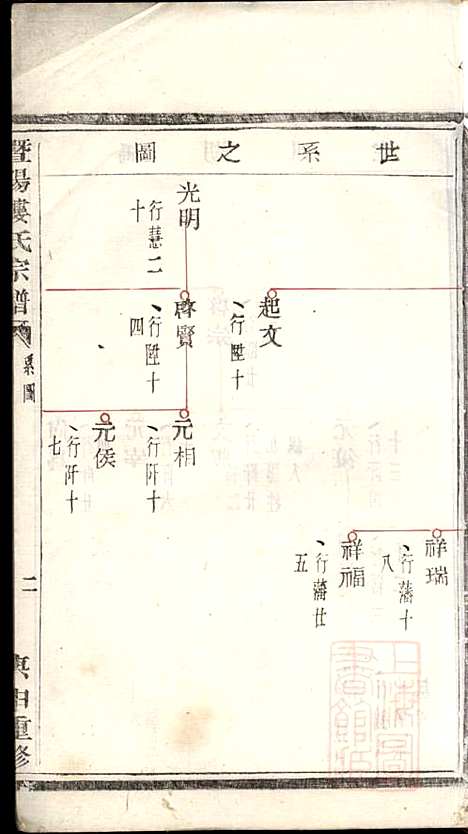 世系之圖
祥瑞
行藩十
八
祥福
行藩廿
五
起文
行陞十
光明
行慧二
十
啓賢
行陞十
四
元相
行阡十
元侯
行阡十
七
暨陽婁氏宗譜
系圖
二
庚申重修